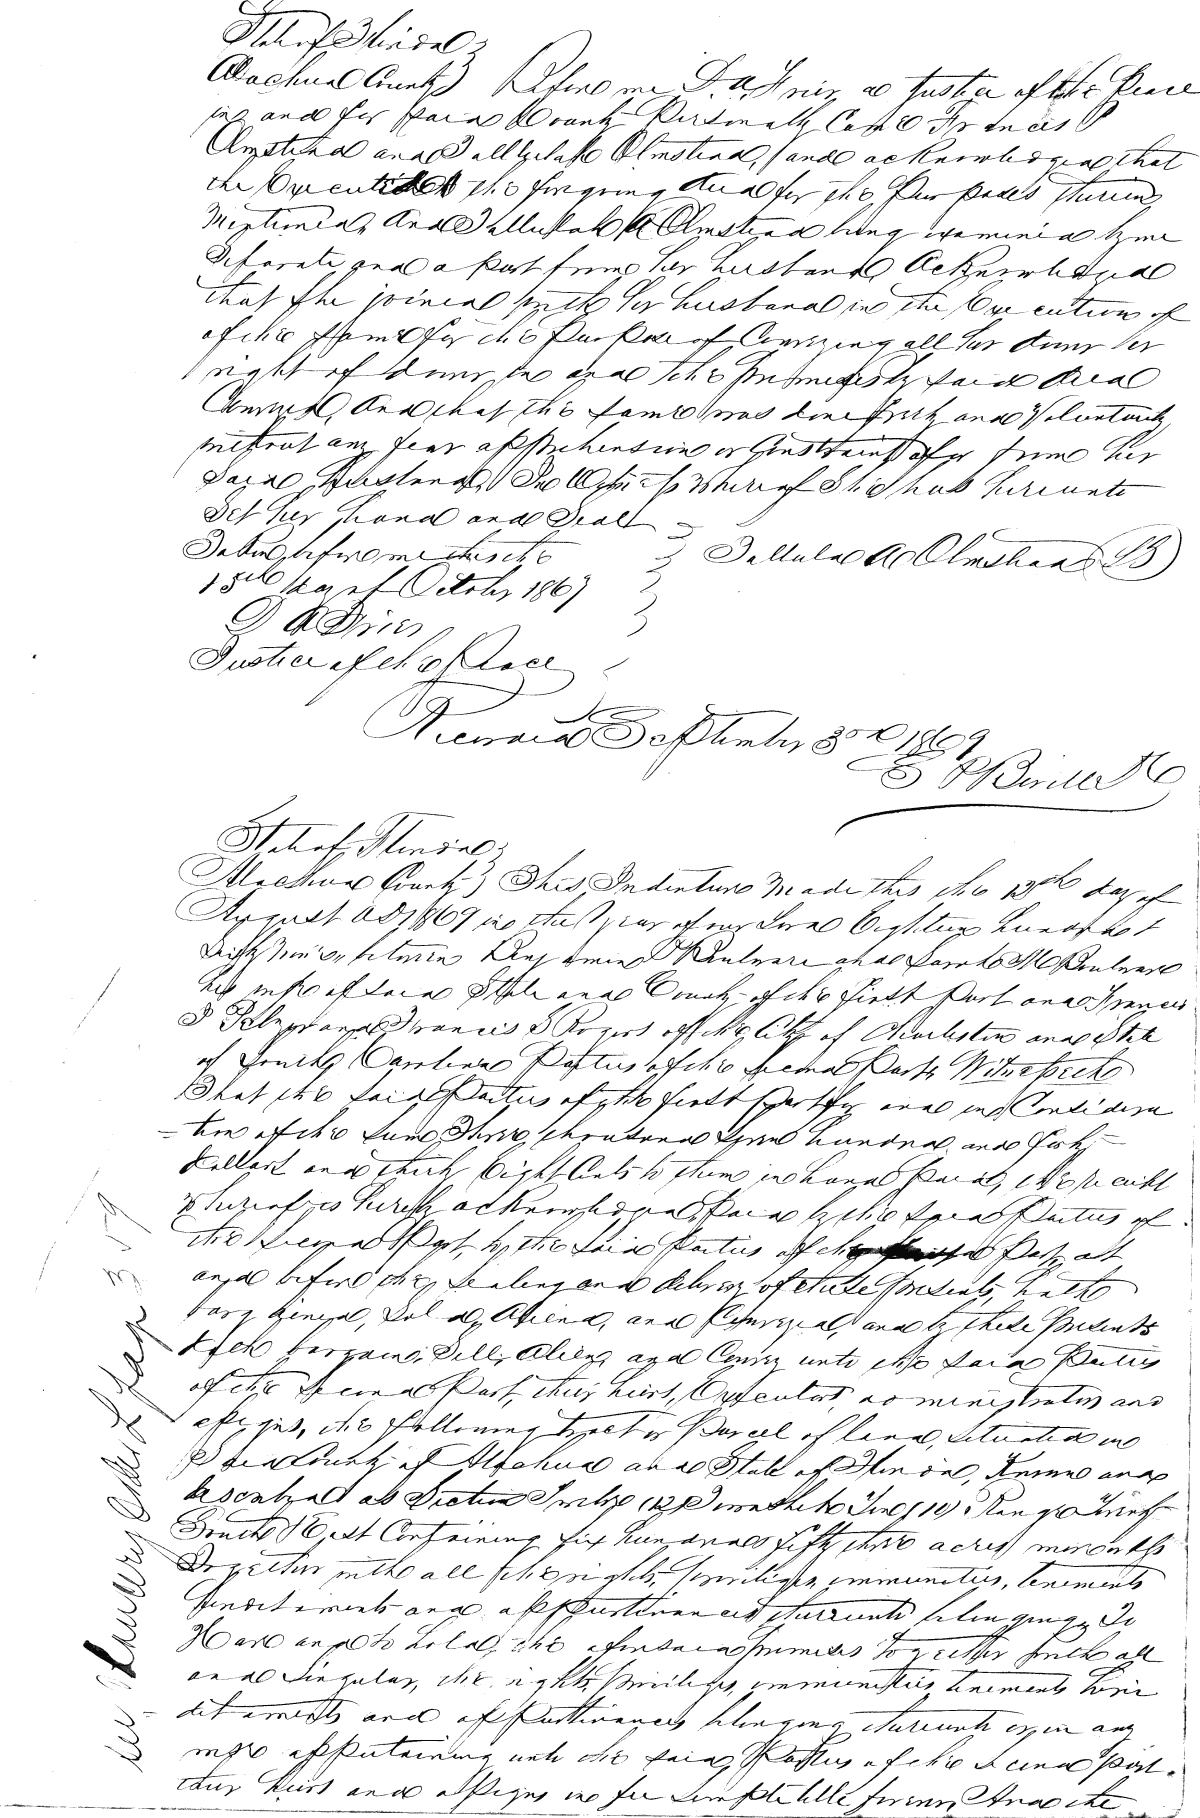 State of Florida
Alachua County Before me D. A. Frier a Justice of the Peace
in and for said County Personally Came Francis P
Olmstead and Tallulah Olmstead, and acknowledged that
the Executed the foregoing deed for the Purposes therein
Mentioned, And Tallulah A Olmstead being examined by me
Separate and apart from her husband Acknowledged
that she joined with her husband in the Execution of
of the same for the Purpose of Conveying all her dower or
right of dower in and to the premises by said deed
Conveyed, And that the same was done freely and Voluntarily
without any fear apprehension or Constraint of or from her
said Husband, In Witness Whereof She has hereunto
Set her hand and Seal
Taken before me this the Tallula A Olmstead (LS)
15th day of October 1867
D A Frier
Justice of the Peace
Recorded September 3rd 1869
State of Florida
Alachua County This Indenture Made this the 13th day of
August AD 1869 in the year of our Lord Eighteen Hundred
Sixty Nine, between Benjamin Boulware and Sarah M Boulware
his wife of said State and County of the first Part and Francis
and Francis S Rogers of the City of Charleston and State
of South Carolina Parties of the Second Part, Witnesseth
That the said Parties of the first Part for and in Considera
tion of the sum Three thousand hundred and forty
dollars and thirty Eight Cents to them in hand Paid, the receipt
whereof is hereby acknowledged, Paid by the said Parties of
the Second Part, to the said Parties of the Part, at
and before the sealing and delivery of these presents, hath
bargained, Sold, Aliened, and Conveyed, and by these Presents
doth bargain, Sell, Alien, and Convey unto the said Parties
of the Second Part, their heirs, Executors, administrators and
assigns, the following tract or Parcel of land, situated in
said County of Alachua and State of Florida, Known and
described as Section Twelve (12) Township Ten (10) Range Twenty
South East Containing six hundred fifty three acres more or less
Together with all the rights, priviliges, immunities, tenements
hereditaments and appurtenances thereunto belonging, To
Have and to hold, the aforesaid premises together with all
and Singular, the rights, priviliges, immunities, tenements here
ditaments and appurtenances belonging thereunto or in any
wise appertaining unto the said Parties of the Second part.
their heirs and assigns in fee simple title forever, And the